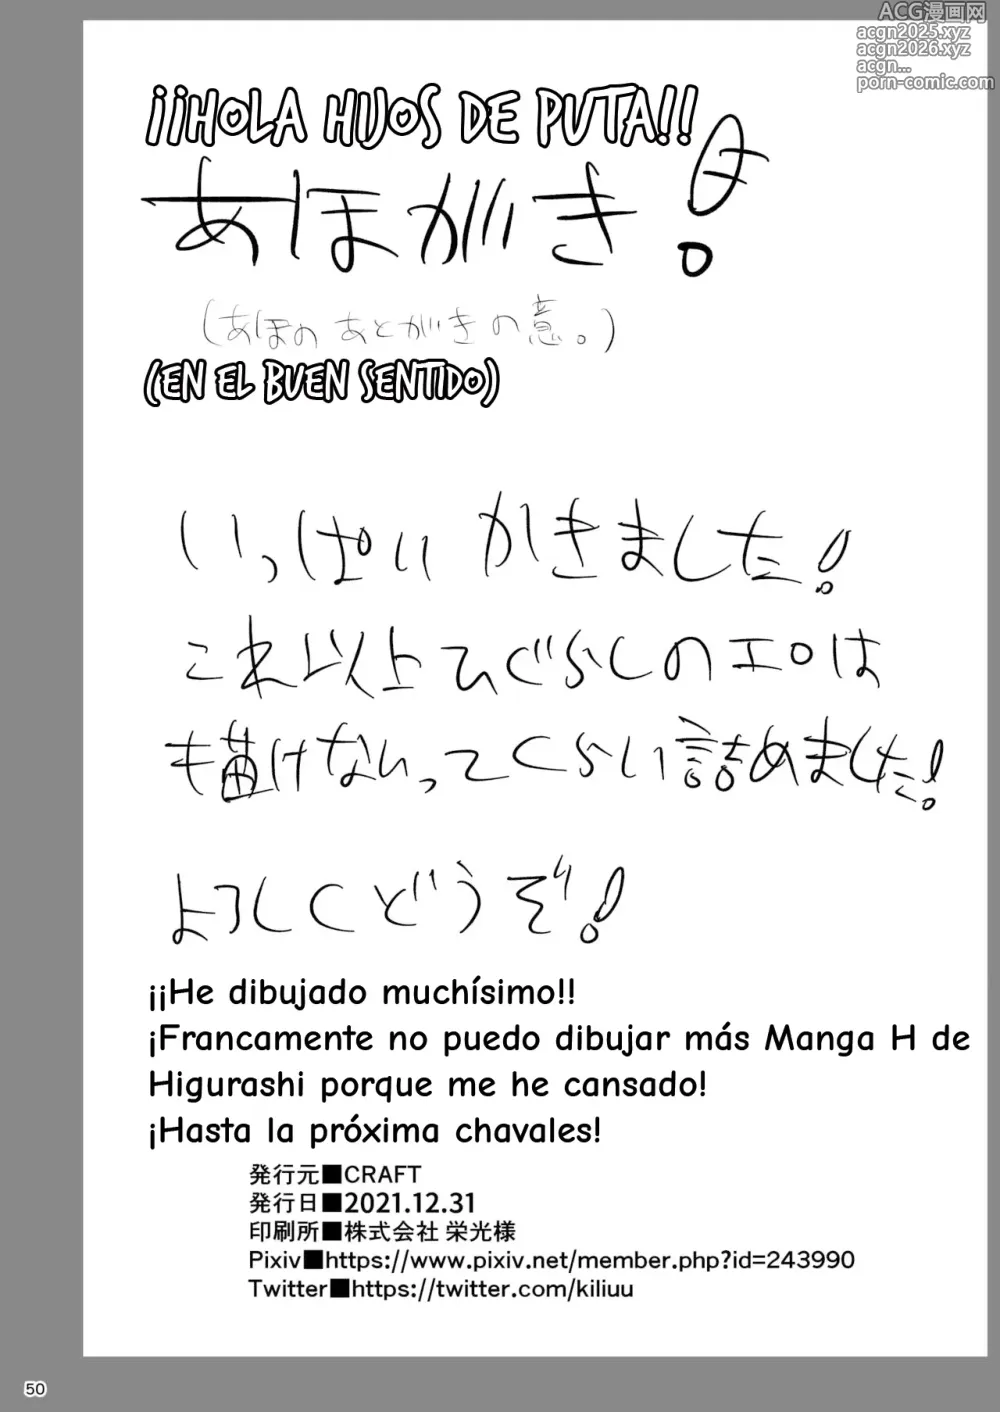 ACG漫画网
acgn2025.xyz
acgn2026.xyz
acgn...
porn-comic.com
¡¡HOLA HIJOS DE PUTA!!
あほがき!
(あほのあとがきの意。)
(EN EL BUEN SENTIDO)
いっぱいかきました!
これ以上ひぐらしのエロは
も描けないってくらい詰めました!
よろしくどうぞ!
¡¡He dibujado muchísimo!!
¡Francamente no puedo dibujar más Manga H de
Higurashi porque me he cansado!
¡Hasta la próxima chavales!
発行元■CRAFT
発行日■2021.12.31
印刷所■株式会社 栄光様
Pixiv■https://www.pixiv.net/member.php?id=243990
Twitter■https://twitter.com/kiliuu
50